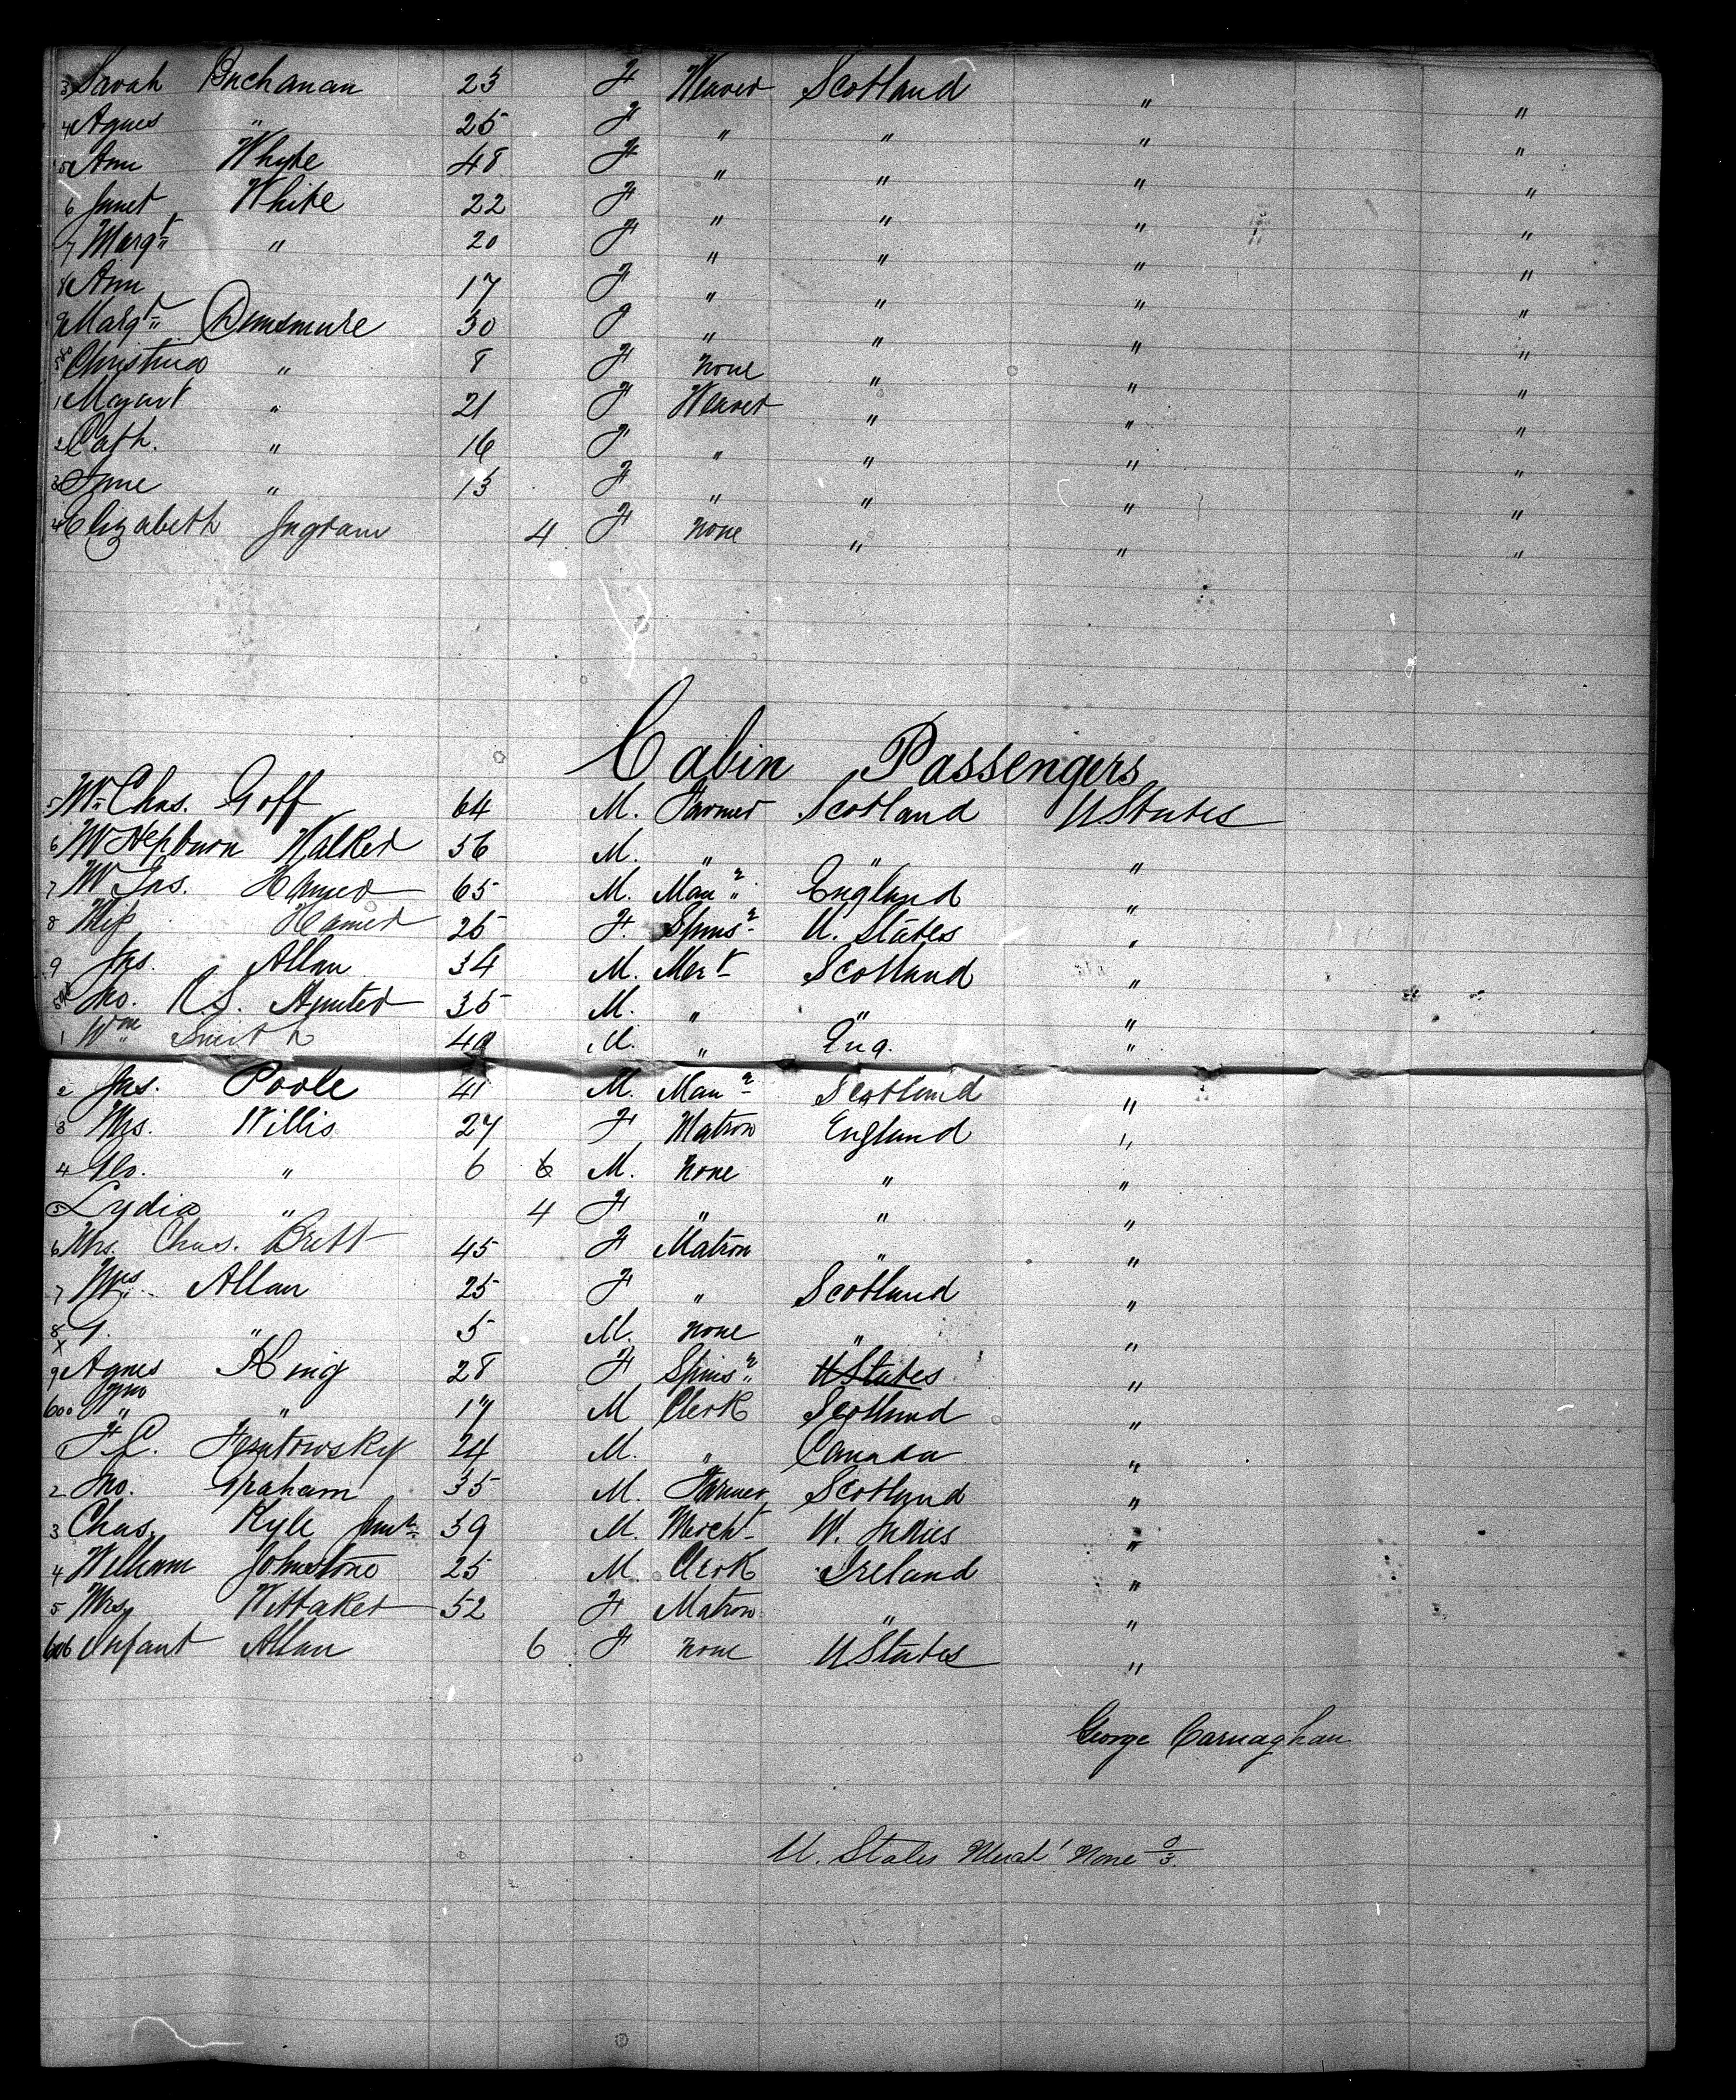 3 Sarah Buchanan 23 F Weaver Scotland " "
4 Agnes " 25 F " " " "
5 Ann Whyte 48 F " " " "
6 Janet White 22 F " " " "
7 Margt " 20 F " " " "
8 Ann 17 F " " " "
9 Margt Dunsmure 50 F " " " "
580 Christina " 8 F none " " "
1 Margart " 21 F Weaver " " "
2 Cath. " 16 F " " " "
3 Jane " 13 F " " " "
4 Elizabeth Ingram 4 F none " " "
Cabin Passengers
5 Mr Chas. Goff 64 M. Farmer Scotland U States
6 Mr Hepburn Walker 56 M. " " "
7 Mr Jas. Hamer 65 M. Manr England "
8 Miss Hamer 25 F. Spinsr U. States "
9 Jas. Allan 34 M. Mert Scotland "
590 Jno. R.S. Hunter 35 M. " " "
1 Wm Smith 49 M. " Eng. "
2 Jas. Poole 41 M. Manr Scotland "
3 Mrs. Willis 27 F Matron England "
4 Geo. " 6 6 M. none " "
5 Lydia " 4 F " " "
6 Mrs. Chas. Britt 45 F Matron " "
7 Mrs Allan 25 F " Scotland "
8 G. " 5 M. none " "
x
9 Agnes King 28 F Spinsr U States "
600 Jno " 17 M Clerk Scotland "
F.C. 24 M. " Canada "
2 Jno. Graham 35 M. Farmer Scotland "
3 Chas. Kyle Junr 39 M. Mercht W. Indies "
4 William Johnstone 25 M. Clerk Ireland "
5 Mrs. Wittaker 52 F Matron " "
606 Infant Allan 6 F none U States "
George Carnaghan
U. States None